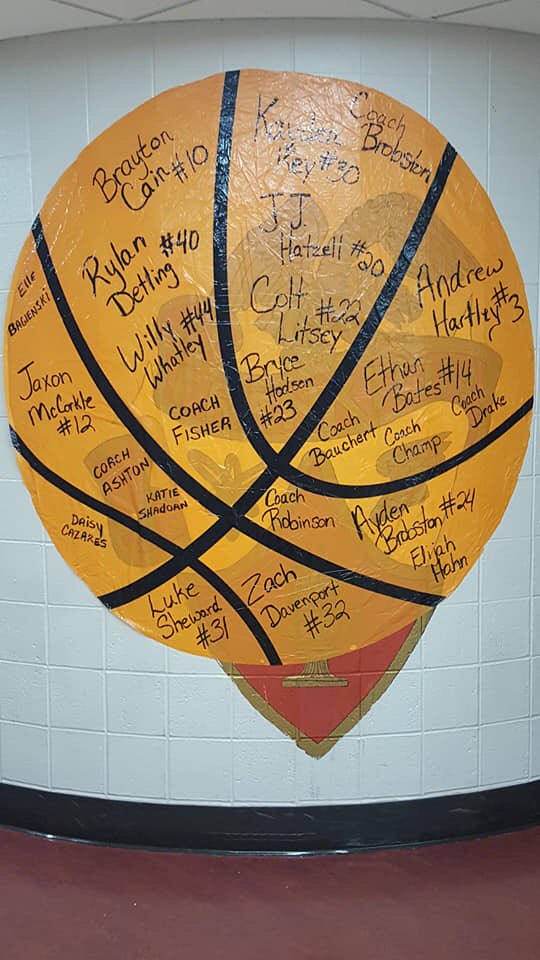 Brayton
Cain #10
Kayden
Key #30
Coach
Brobston
Rylan #40
Detling
J.J.
Hatzell #20
Elle
BAGIENSKI
Willy #44
Whatley
Colt #22
Litsey
Andrew
Hartley #3
Jaxon
McCorkle
#12
COACH
FISHER
Bryce
Hodsen
#23
Ethan #14
Bates
Coach
Bauchert
Coach
Champ
Coach
Drake
COACH
ASHTON
KATIE
SHADOAN
Coach
Robinson
Ayden
Brobston #24
DAISY
CAZARES
Elijah
Hahn
Luke
Sheward
#31
Zach
Davenport
#32